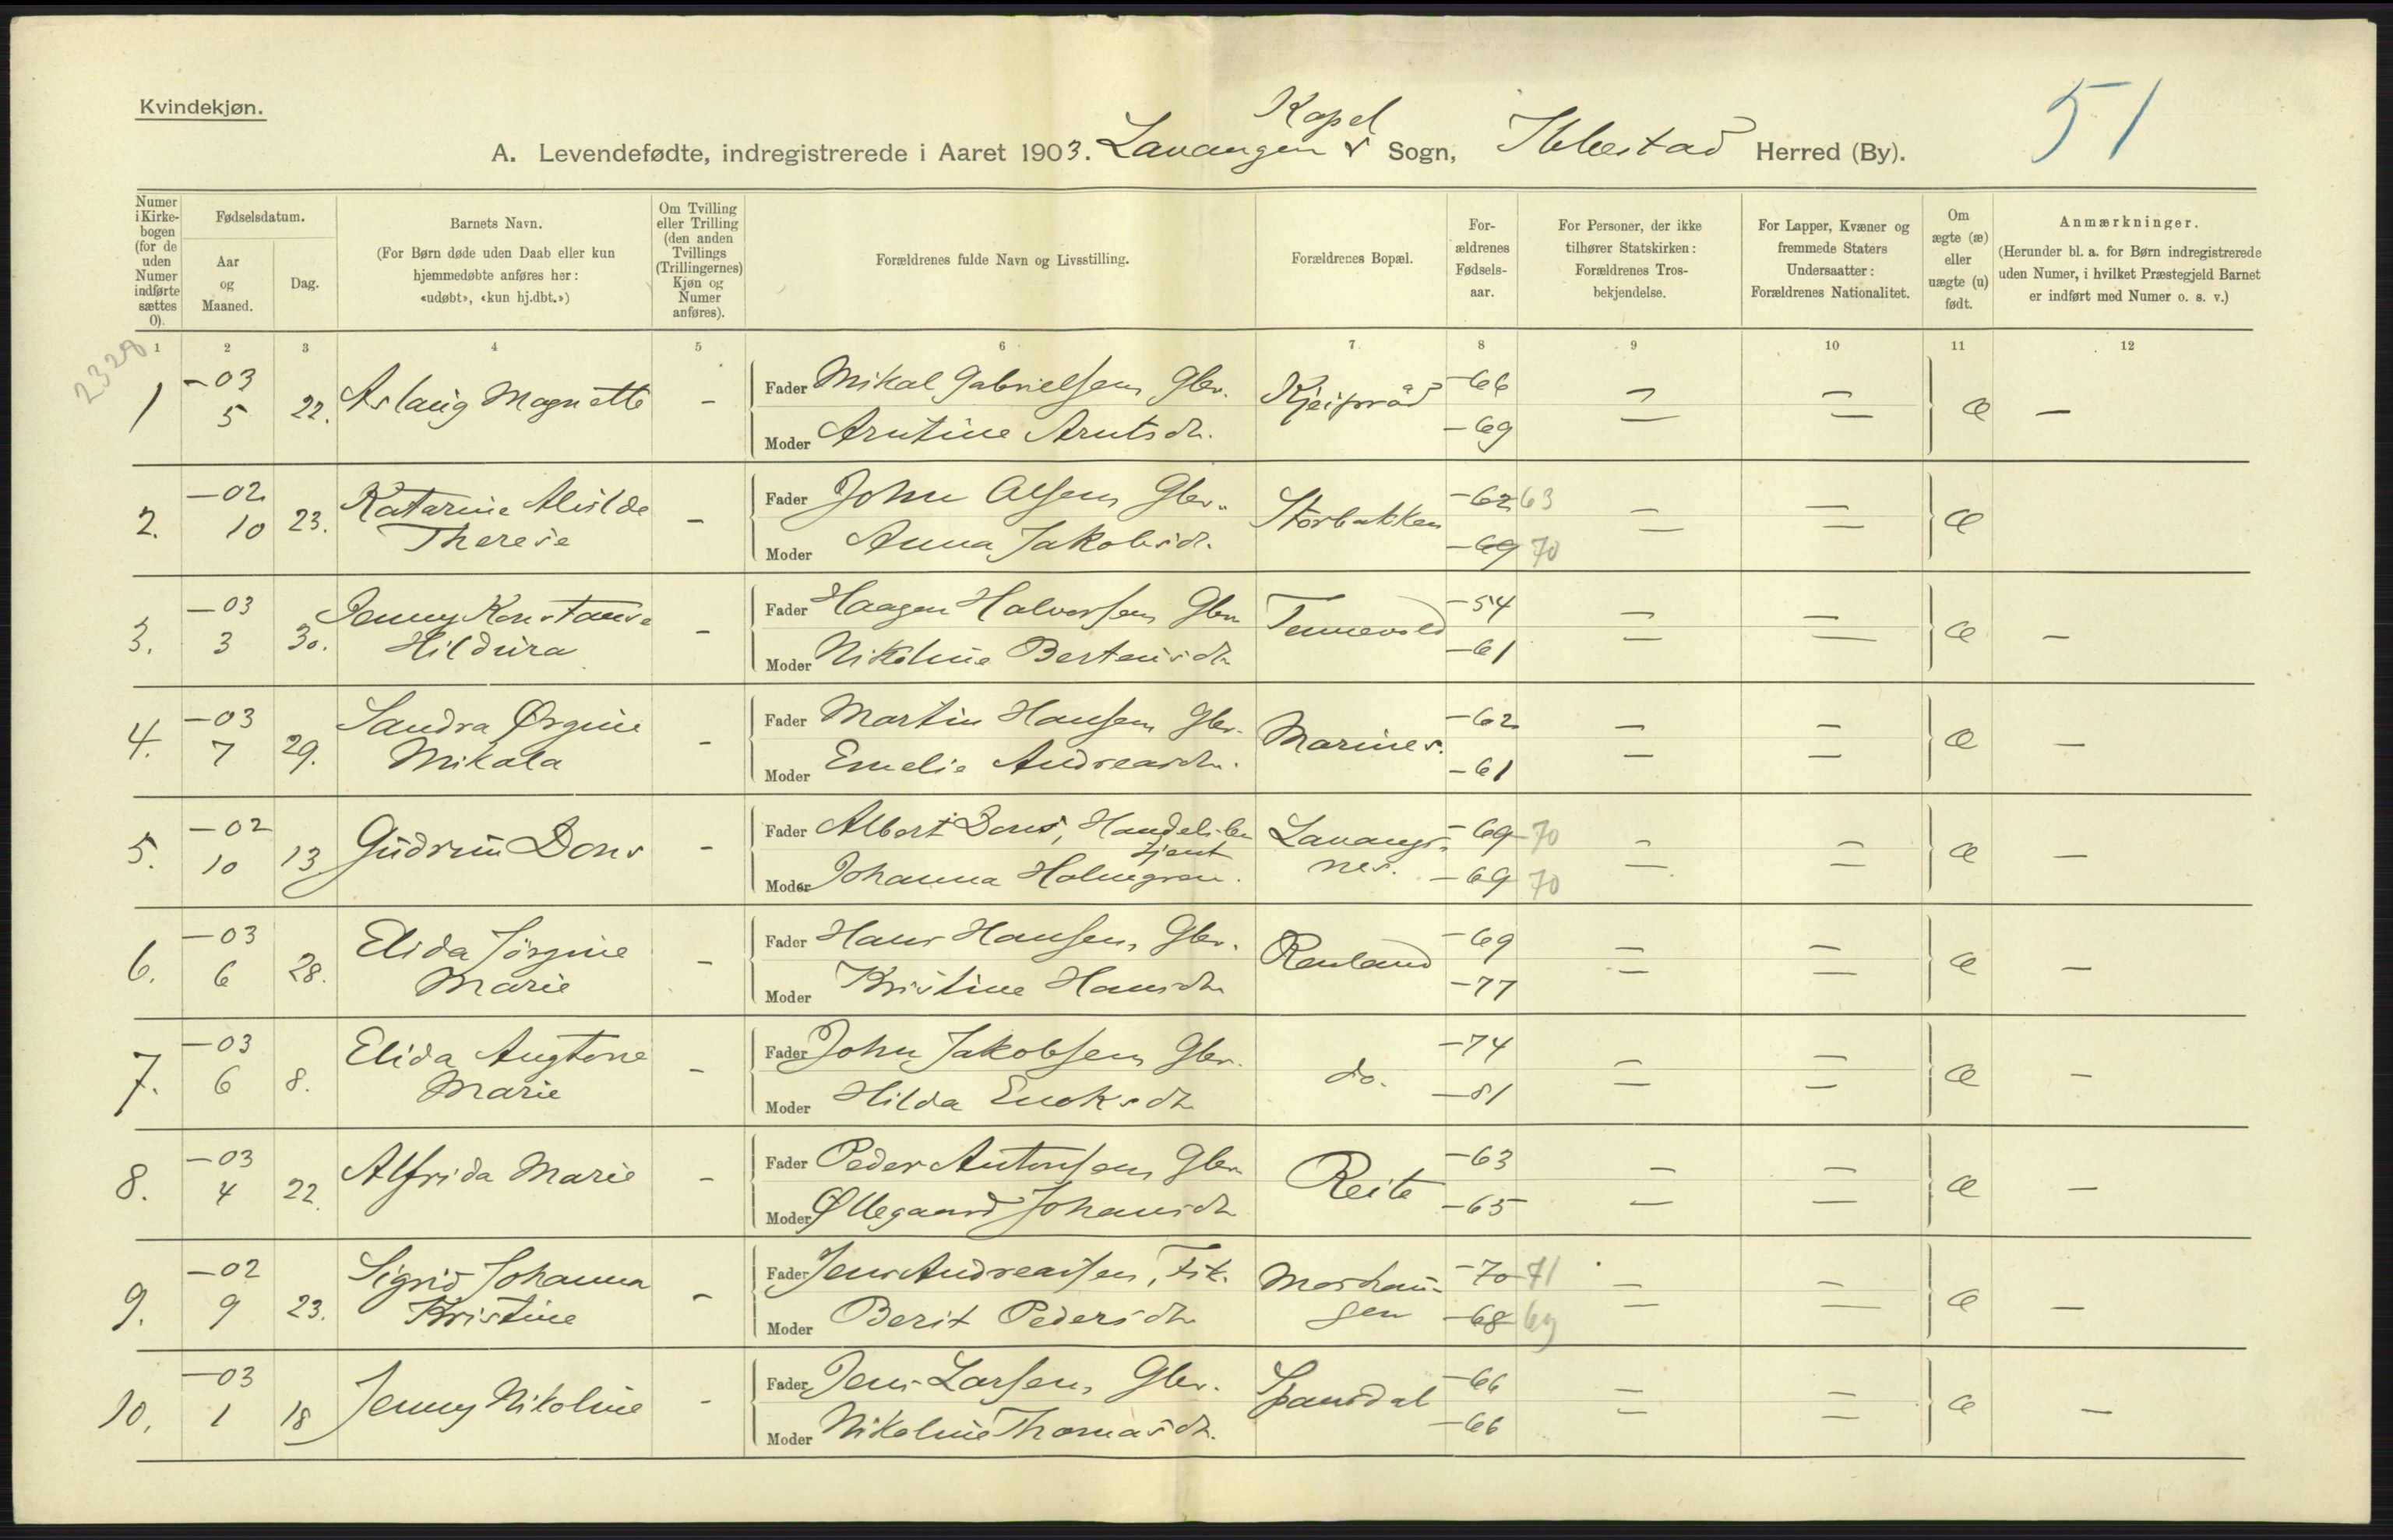 Kvindekjøn.
51
Kapel
A. Levendefødte, indregistrerede i Aaret 1903. Lavangen s Sogn, Ibbestad Herred (By).
Numer i Kirkebogen (for de uden Numer indførte sættes 0).
Fødselsdatum.
Aar og Maaned.
Dag.
Barnets Navn.
(For Børn døde uden Daab eller kun hjemmedøbte anføres her: «udøbt», «kun hj.dbt.»)
Om Tvilling eller Trilling (den anden Tvillings (Trillingernes) Kjøn og Numer anføres).
Forældrenes fulde Navn og Livsstilling.
Forældrenes Bopæl.
Forældrenes Fødselsaar.
For Personer, der ikke tilhører Statskirken: Forældrenes Trosbekjendelse.
For Lapper, Kvæner og fremmede Staters Undersaatter: Forældrenes Nationalitet.
Om ægte (æ) eller uægte (u) født.
Anmærkninger.
(Herunder bl. a. for Børn indregistrerede uden Numer, i hvilket Præstegjeld Barnet er indført med Numer o. s. v.)
1 2 3 4 5 6 7 8 9 10 11 12
2328
1 -03 5 22. Aslaug Magnette - Fader Mikal Gabrielsen Gbr. Kjeipraad -66 = = æ -
Moder Arntine Arntsdr. -69
2. -02 10 23. Katarine Alvilde Therese - Fader John Olsen Gbr. Storbakken -62 63 = = æ
Moder Anna Jakobsdr. -69 70
3. -03 3 30. Jenny Konstanse Hildura - Fader Haagen Halvorsen Gbr Tennevold -54 = = æ -
Moder Nikoline Bertensdr -61
4. -03 7 29. Sandra Ørgine Mikala - Fader Martin Hansen Gbr. Marines. -62 = = æ -
Moder Emelie Andreasdr. -61
5. -02 10 13 Gudrun Dons - Fader Albert Dons, Handelsbetjent Lavangsnes. -69 70 = = æ -
Moder Johanna Holmgren. -69 70
6. -03 6 28. Elida Jørgine Marie - Fader Hans Hansen, Gbr. Rauland -69 = = æ -
Moder Kristine Hansdr -77
7. -03 6 8. Elida Augtone Marie - Fader John Jakobsen Gbr. do. -74 = = æ -
Moder Hilda Enoksdr -81
8. -03 4 22. Alfrida Marie - Fader Peder Antonsen Gbr Reite -63 = = æ -
Moder Øllegaard Johansdr -65
9. -02 9 23. Sigrid Johanna Kristine - Fader Jens Andreassen, Fisk. -70 71 = = æ -
Moder Berit Pedersdr -68 69
10. -03 1 18 Jenny Nikoline - Fader Jens Larsen, Gbr. Spansdal -66 = = æ -
Moder Nikoline Thomasdr. -66